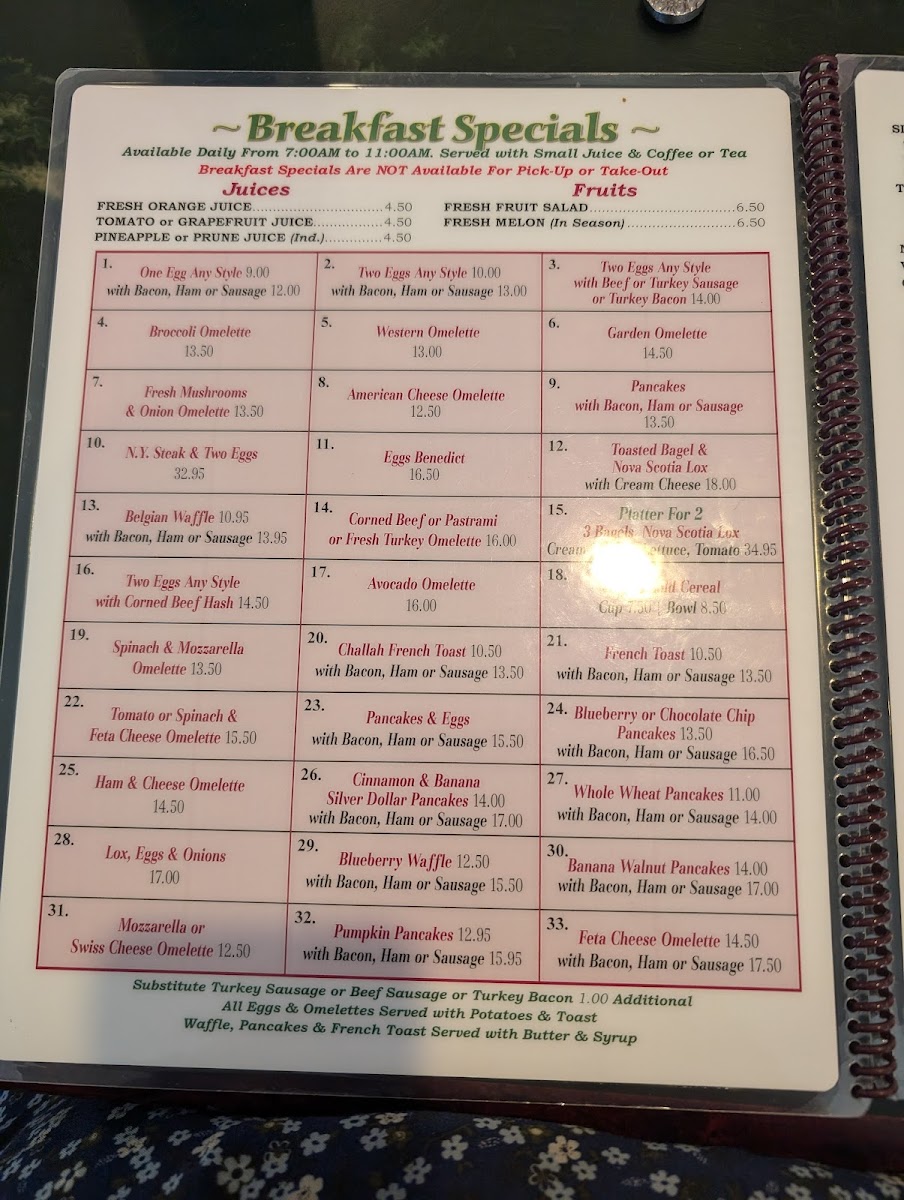 ~ Breakfast Specials ~
Available Daily From 7:00AM to 11:00AM. Served with Small Juice & Coffee or Tea
Breakfast Specials Are NOT Available For Pick-Up or Take-Out
Juices
FRESH ORANGE JUICE 4.50
TOMATO or GRAPEFRUIT JUICE 4.50
PINEAPPLE or PRUNE JUICE (Ind.) 4.50
Fruits
FRESH FRUIT SALAD 6.50
FRESH MELON (In Season) 6.50
1.
One Egg Any Style 9.00
with Bacon, Ham or Sausage 12.00
2.
Two Eggs Any Style 10.00
with Bacon, Ham or Sausage 13.00
3.
Two Eggs Any Style
with Beef or Turkey Sausage
or Turkey Bacon 14.00
4.
Broccoli Omelette
13.50
5.
Western Omelette
13.00
6.
Garden Omelette
14.50
7.
Fresh Mushrooms
& Onion Omelette 13.50
8.
American Cheese Omelette
12.50
9.
Pancakes
with Bacon, Ham or Sausage
13.50
10.
N.Y. Steak & Two Eggs
32.95
11.
Eggs Benedict
16.50
12.
Toasted Bagel &
Nova Scotia Lox
with Cream Cheese 18.00
13.
Belgian Waffle 10.95
with Bacon, Ham or Sausage 13.95
14.
Corned Beef or Pastrami
or Fresh Turkey Omelette 16.00
15.
Platter For 2
3 Bagels, Nova Scotia Lox
Cream Lettuce, Tomato 34.95
16.
Two Eggs Any Style
with Corned Beef Hash 14.50
17.
Avocado Omelette
16.00
18.
Cereal
Cup 7.50 | Bowl 8.50
19.
Spinach & Mozzarella
Omelette 13.50
20.
Challah French Toast 10.50
with Bacon, Ham or Sausage 13.50
21.
French Toast 10.50
with Bacon, Ham or Sausage 13.50
22.
Tomato or Spinach &
Feta Cheese Omelette 15.50
23.
Pancakes & Eggs
with Bacon, Ham or Sausage 15.50
24.
Blueberry or Chocolate Chip
Pancakes 13.50
with Bacon, Ham or Sausage 16.50
25.
Ham & Cheese Omelette
14.50
26.
Cinnamon & Banana
Silver Dollar Pancakes 14.00
with Bacon, Ham or Sausage 17.00
27.
Whole Wheat Pancakes 11.00
with Bacon, Ham or Sausage 14.00
28.
Lox, Eggs & Onions
17.00
29.
Blueberry Waffle 12.50
with Bacon, Ham or Sausage 15.50
30.
Banana Walnut Pancakes 14.00
with Bacon, Ham or Sausage 17.00
31.
Mozzarella or
Swiss Cheese Omelette 12.50
32.
Pumpkin Pancakes 12.95
with Bacon, Ham or Sausage 15.95
33.
Feta Cheese Omelette 14.50
with Bacon, Ham or Sausage 17.50
Substitute Turkey Sausage or Beef Sausage or Turkey Bacon 1.00 Additional
All Eggs & Omelettes Served with Potatoes & Toast
Waffle, Pancakes & French Toast Served with Butter & Syrup